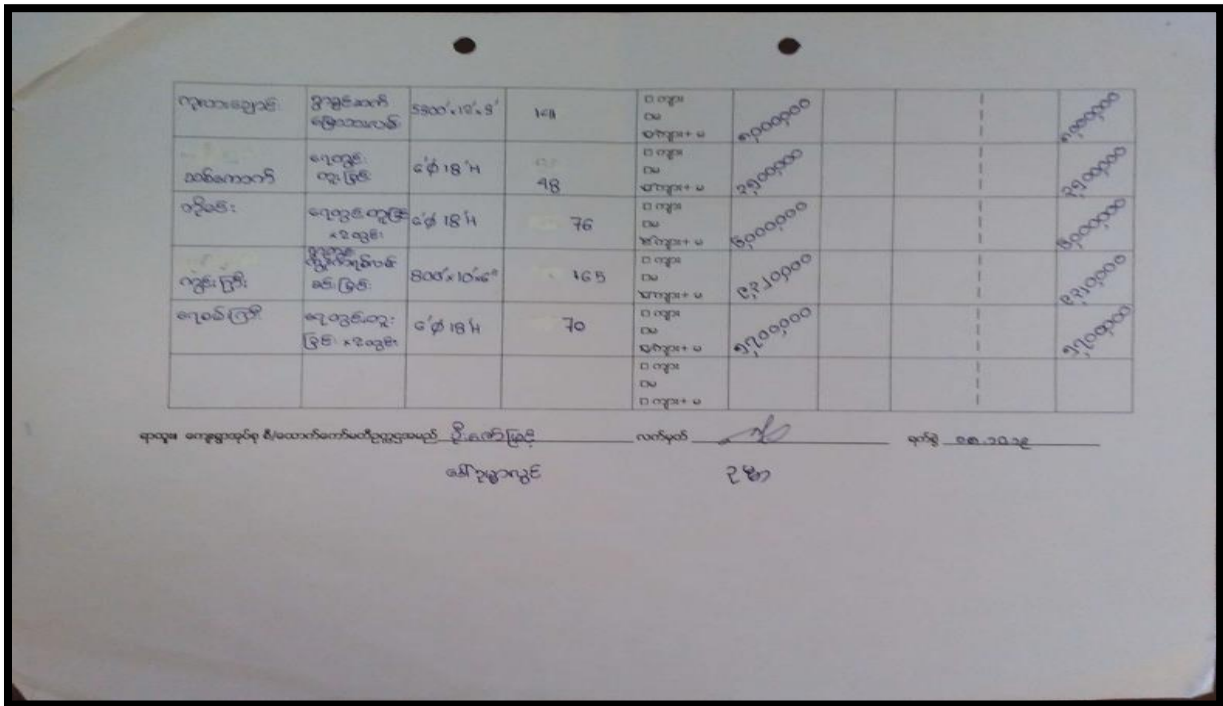 ရွာချင်းဆက်
မြေသားလမ်း
5300'×12'×3'
□ ကျား
□ မ
□ ကျား+ မ
၈,၀၀၀,၀၀၀
၈,၀၀၀,၀၀၀
ဆစ်ကောက်
ရေတွင်း
တူးခြင်း
6'φ 18'H
48
□ ကျား
□ မ
□ ကျား+ မ
၂,၅၀၀,၀၀၀
၂,၅၀၀,၀၀၀
ရေတွင်းတူးခြင်း
×2တွင်း
6'φ 18'H
76
□ ကျား
□ မ
□ ကျား+ မ
၆,၀၀၀,၀၀၀
၆,၀၀၀,၀၀၀
ကျွန်းကြီး
ခင်းခြင်း
800'×10'×6"
165
□ ကျား
□ မ
□ ကျား+ မ
၉,၃၂၀,၀၀၀
၉,၃၂၀,၀၀၀
ရေစစ်ကြီး
ရေတွင်းတူး
ခြင်း ×2တွင်း
6'φ 18'H
70
□ ကျား
□ မ
□ ကျား+ မ
၅,၇၀၀,၀၀၀
၅,၇၀၀,၀၀၀
□ ကျား
□ မ
□ ကျား+ မ
ရာထူး။ ကျေးရွာအုပ်စု စီ/ထောက်ကော်မတီဥက္ကဌအမည် ဦးဇော်မြင့် လက်မှတ် ရက်စွဲ
ဒေါ်ဥမ္မာလွင် ဥမ္မာ